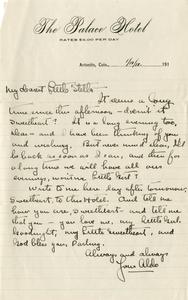 The Palace Hotel
RATES $3.00 PER DAY
Antonito, Colo., 1/20/12. 191
My dearest Little Stella
It seems a long
time since this afternoon, doesn't it
sweetheart? It is a long evening too,
dear — and I have been thinking of you
and wishing. But never mind dear, I'll
be back as soon as I can, and then for
a long time we will have all our
evenings, won't we little girl?
Write to me here day after tomorrow,
sweetheart, to this Hotel. And tell me
how you are, sweetheart — and tell me
that you — you love me, my little girl.
Goodnight, my little sweetheart, and
God bless you, darling.
Always and always
Your Aldo